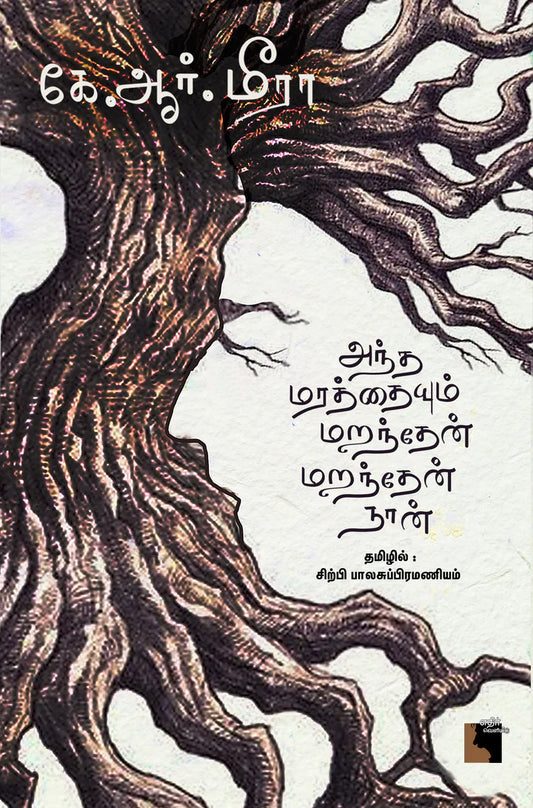 கே.ஆர். மீரா
அந்த
மரத்தையும்
மறந்தேன்
மறந்தேன்
நான்
தமிழில் :
சிற்பி பாலசுப்பிரமணியம்
எதிர்
வெளியீடு